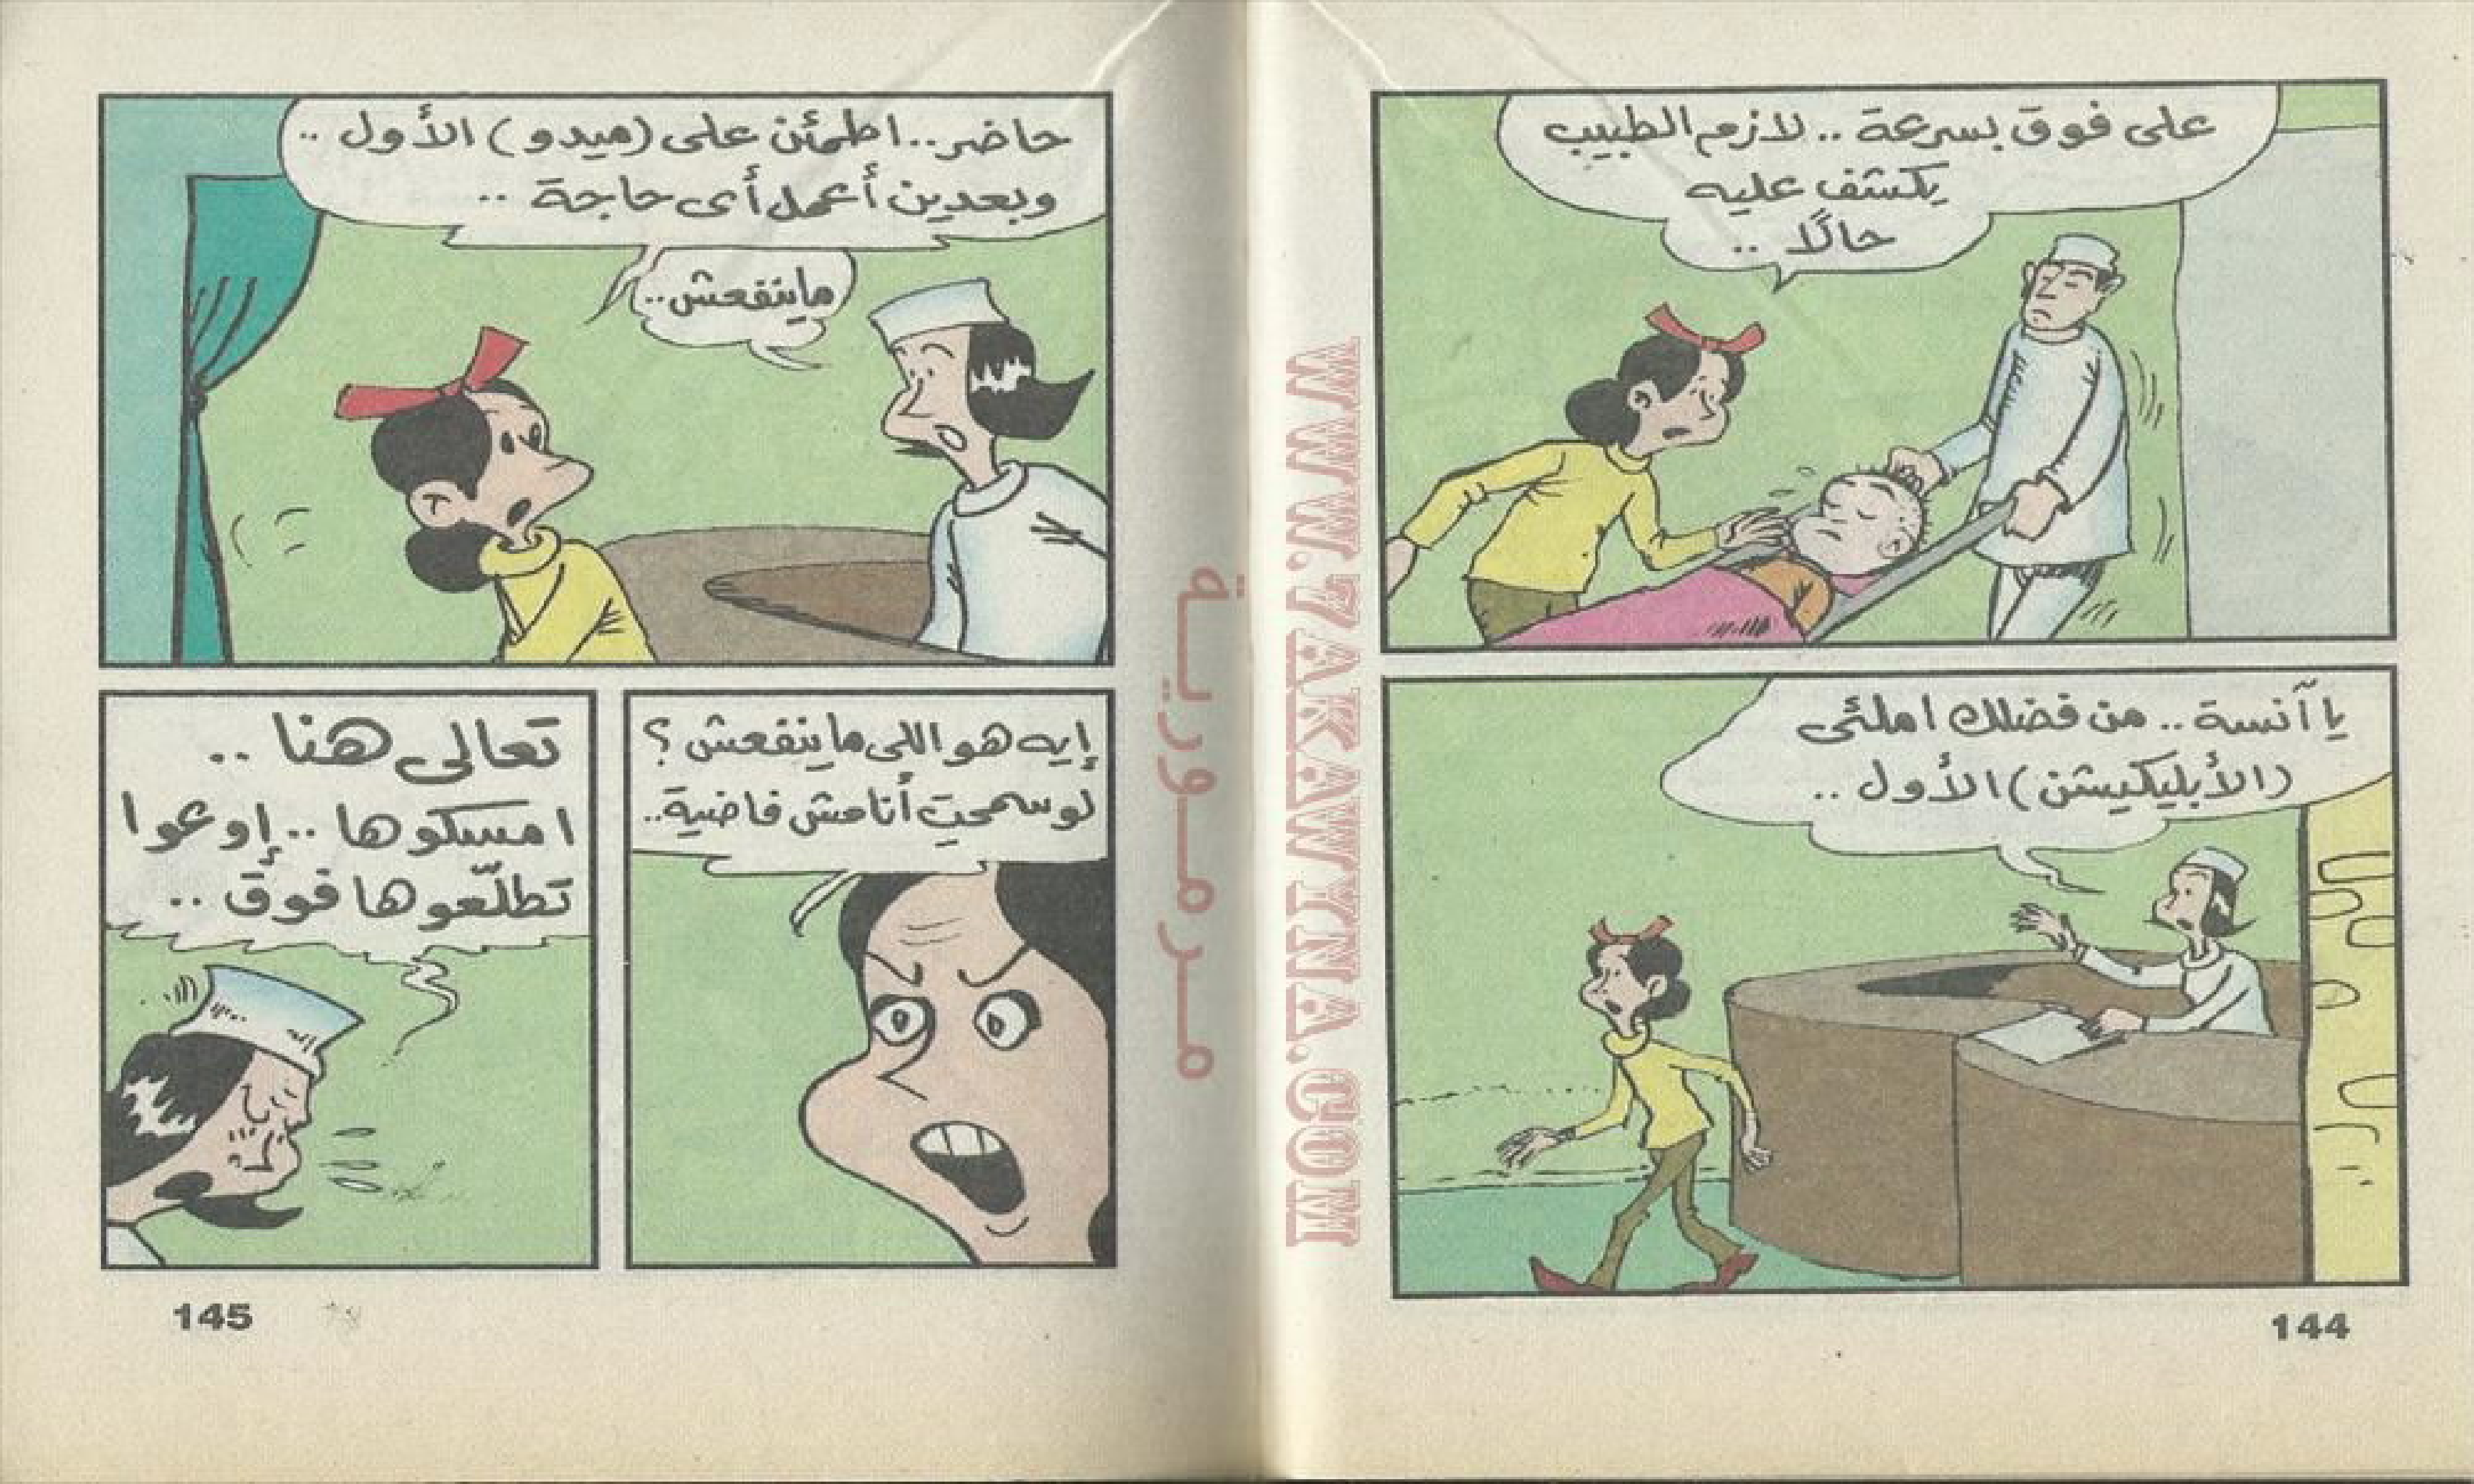 على فوق بسرعة .. لازم الطبيب
يكشف عليه
حالًا ..
يا آنسة .. من فضلك املئى
(الأبليكيشن) الأول ..
144
حاضر .. اطمئن على (ميدو) الأول ..
وبعدين أعمل أى حاجة ..
ماينفعش ..
إيه هو اللى ماينفعش ؟
لو سمحت أنا مش فاضية ..
تعالى هنا ..
امسكوها .. إوعوا
تطلّعوها فوق ..
145
WWW.7AKAWYNA.COM
مرمورية